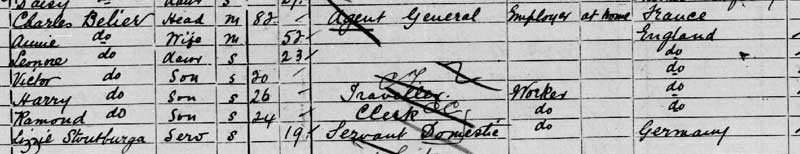 Daisy do daur s 29
Charles Belier Head M 82 Agent General Employer at home France
Annie do Wife M 52 England
Leonore do daur S 23 do
Victor do Son S 20 do
Harry do Son S 26 Traveller Worker do
Ramond do Son S 24 Clerk do do
Lizzie Stoutburga Serv S 19 Servant Domestic do Germany